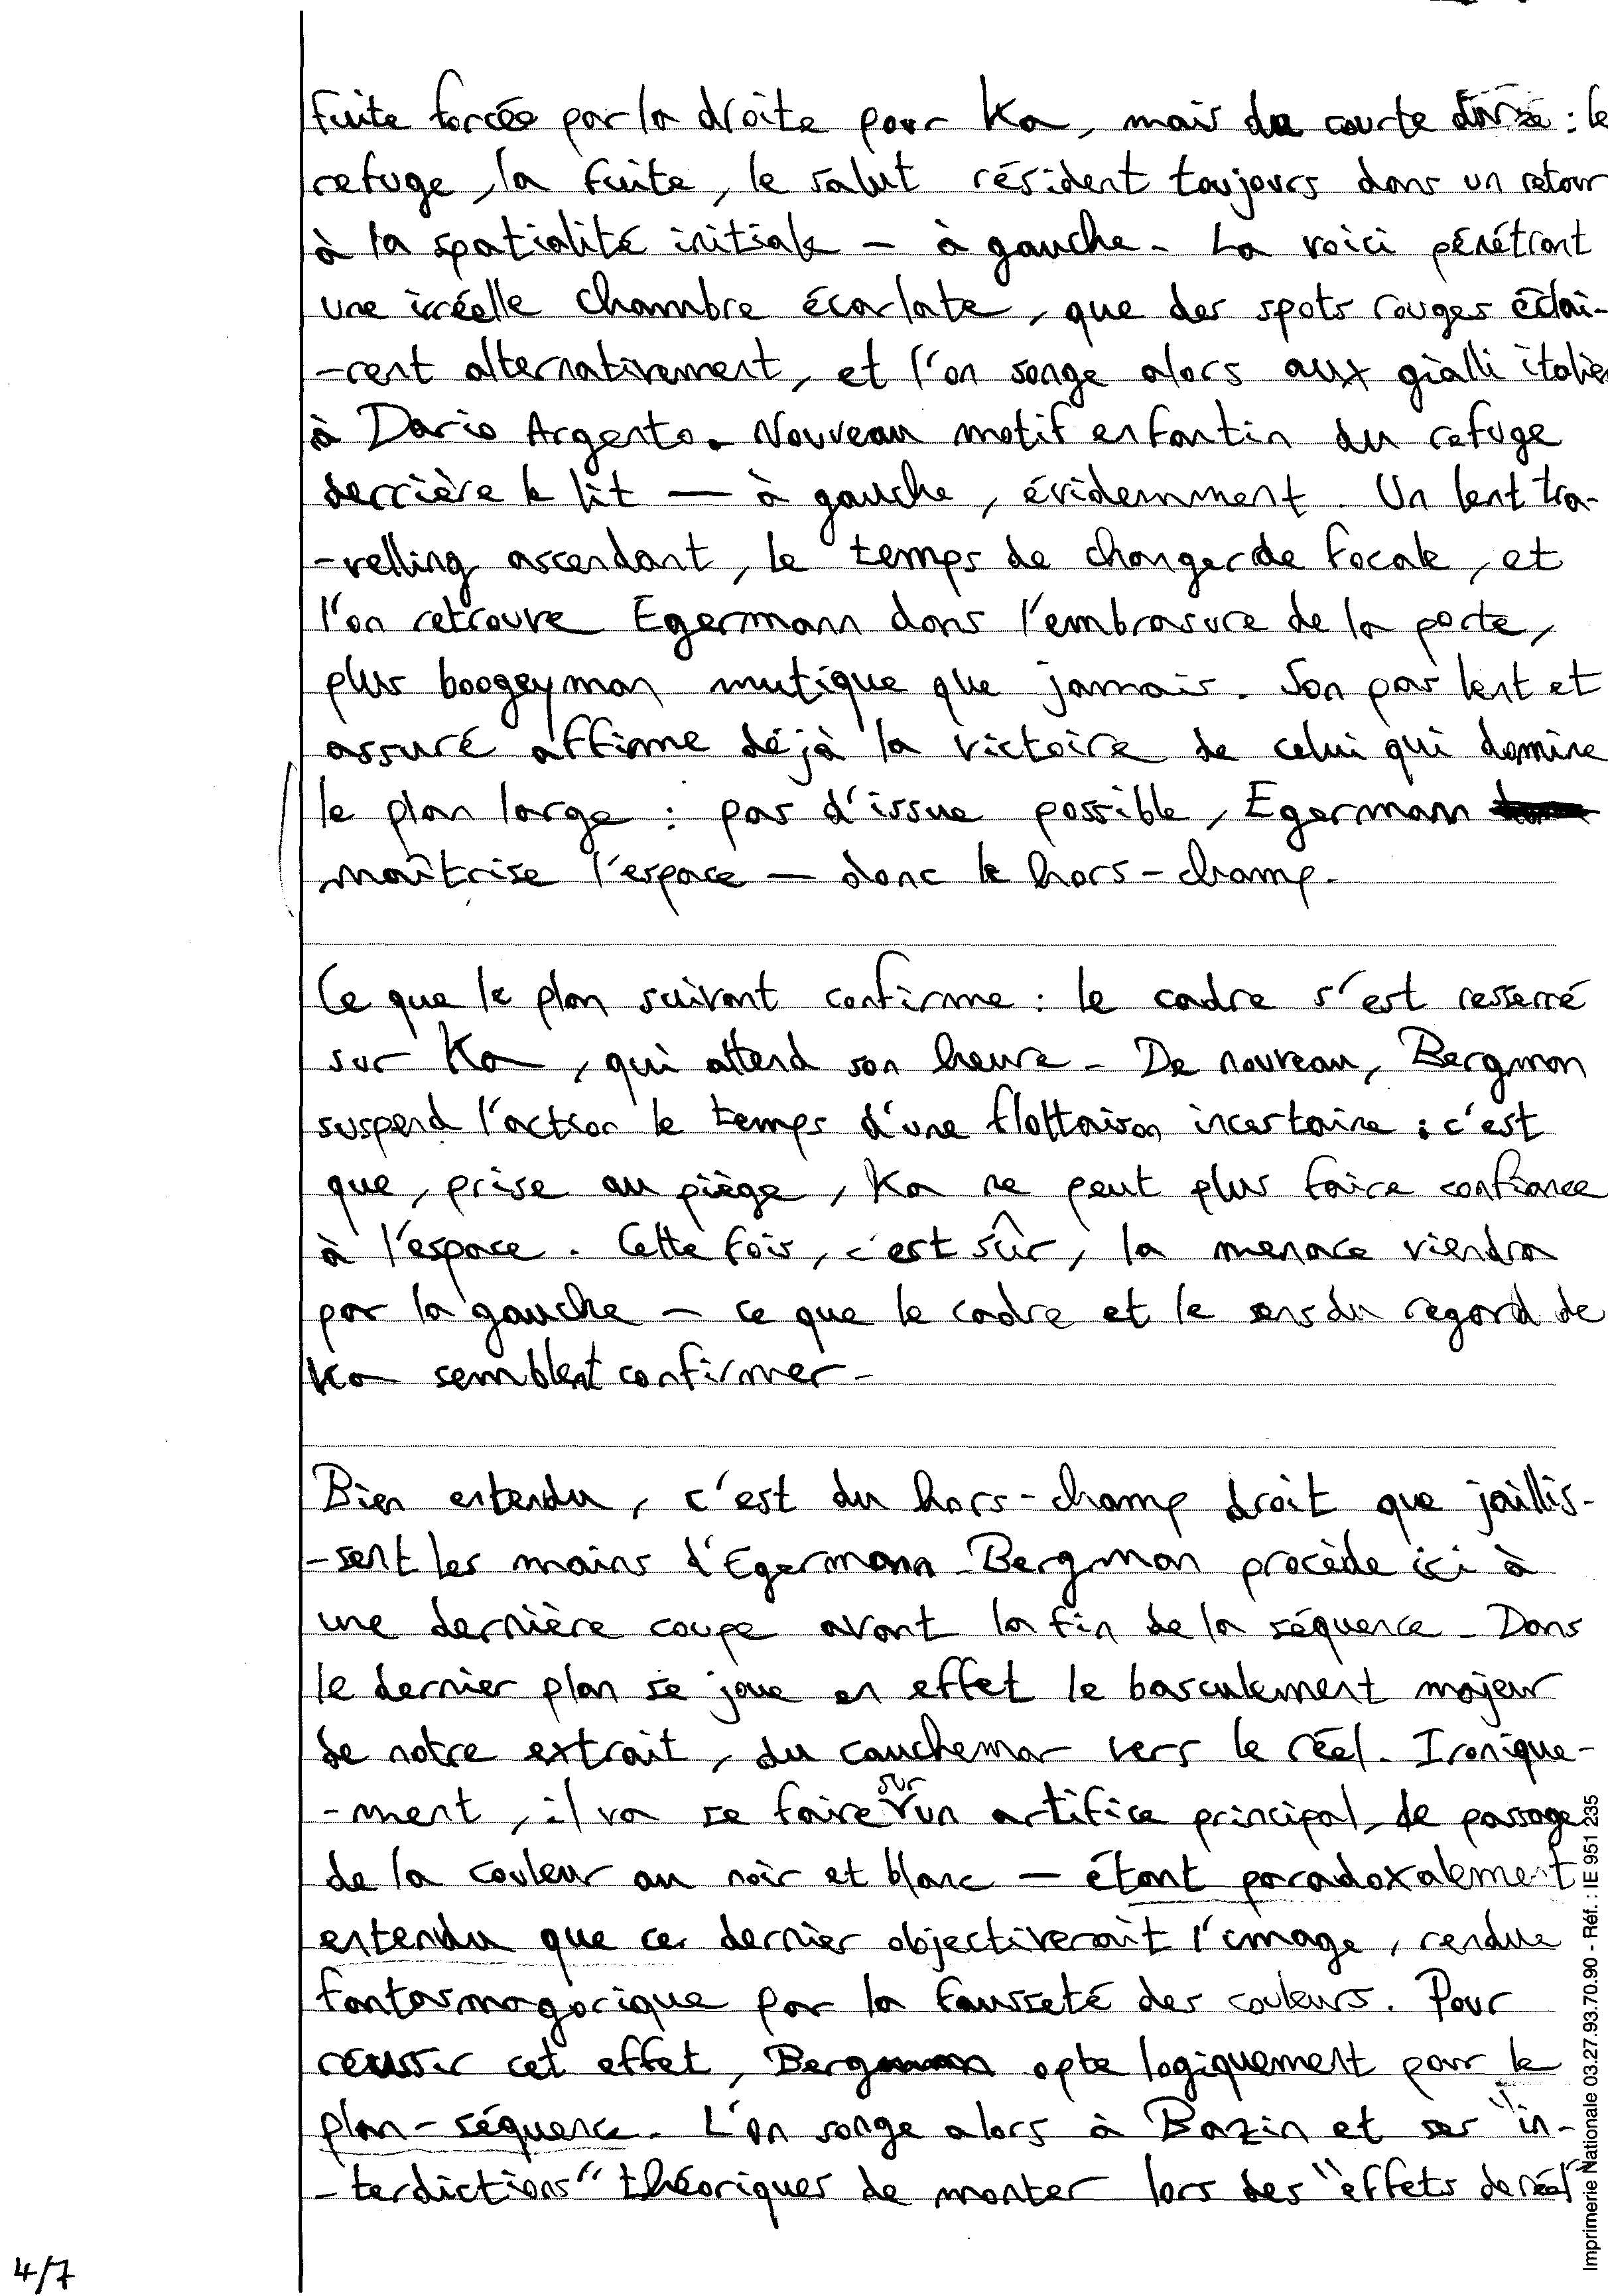 fuite forcée par la droite pour Ka, mais de courte durée : le
refuge, la fuite, le salut résident toujours dans un retour
à la spatialité initiale – à gauche. La voici pénétrant
une irréelle chambre écarlate, que des spots rouges éclai-
-rent alternativement, et l'on songe alors aux gialli italie
à Dario Argento. Nouveau motif enfantin du refuge
derrière le lit — à gauche, évidemment. Un lent tra-
-velling ascendant, le temps de changer de focale, et
l'on retrouve Egermann dans l'embrasure de la porte,
plus boogeyman mutique que jamais. Son pas lent et
assuré affirme déjà la victoire de celui qui domine
le plan large : pas d'issue possible, Egermann
maîtrise l'espace — donc le hors-champ.
Ce que le plan suivant confirme : le cadre s'est resserré
sur Ka, qui attend son heure. De nouveau, Bergman
suspend l'action le temps d'une flottaison incertaine : c'est
que, prise au piège, Ka ne peut plus faire confiance
à l'espace. Cette fois, c'est sûr, la menace viendra
par la gauche – ce que le cadre et le sens du regard de
Ka semblent confirmer.
Bien entendu, c'est du hors-champ droit que jaillis-
-sent les mains d'Egermann. Bergman procède ici à
une dernière coupe avant la fin de la séquence. Dans
le dernier plan se joue en effet le basculement majeur
de notre extrait, du cauchemar vers le réel. Ironique-
-ment, il va se faire sur un artifice principal, de passage
de la couleur au noir et blanc — étant paradoxalement
entendu que ce dernier objectiverait l'image, rendue
fantasmagorique par la fausseté des couleurs. Pour
réussir cet effet, Bergman opte logiquement pour le
plan-séquence. L'on songe alors à Bazin et ses "in-
-terdictions" théoriques de monter lors des "effets de réel"
4/7
Imprimerie Nationale 03.27.93.70.90 - Réf. : IE 951 235